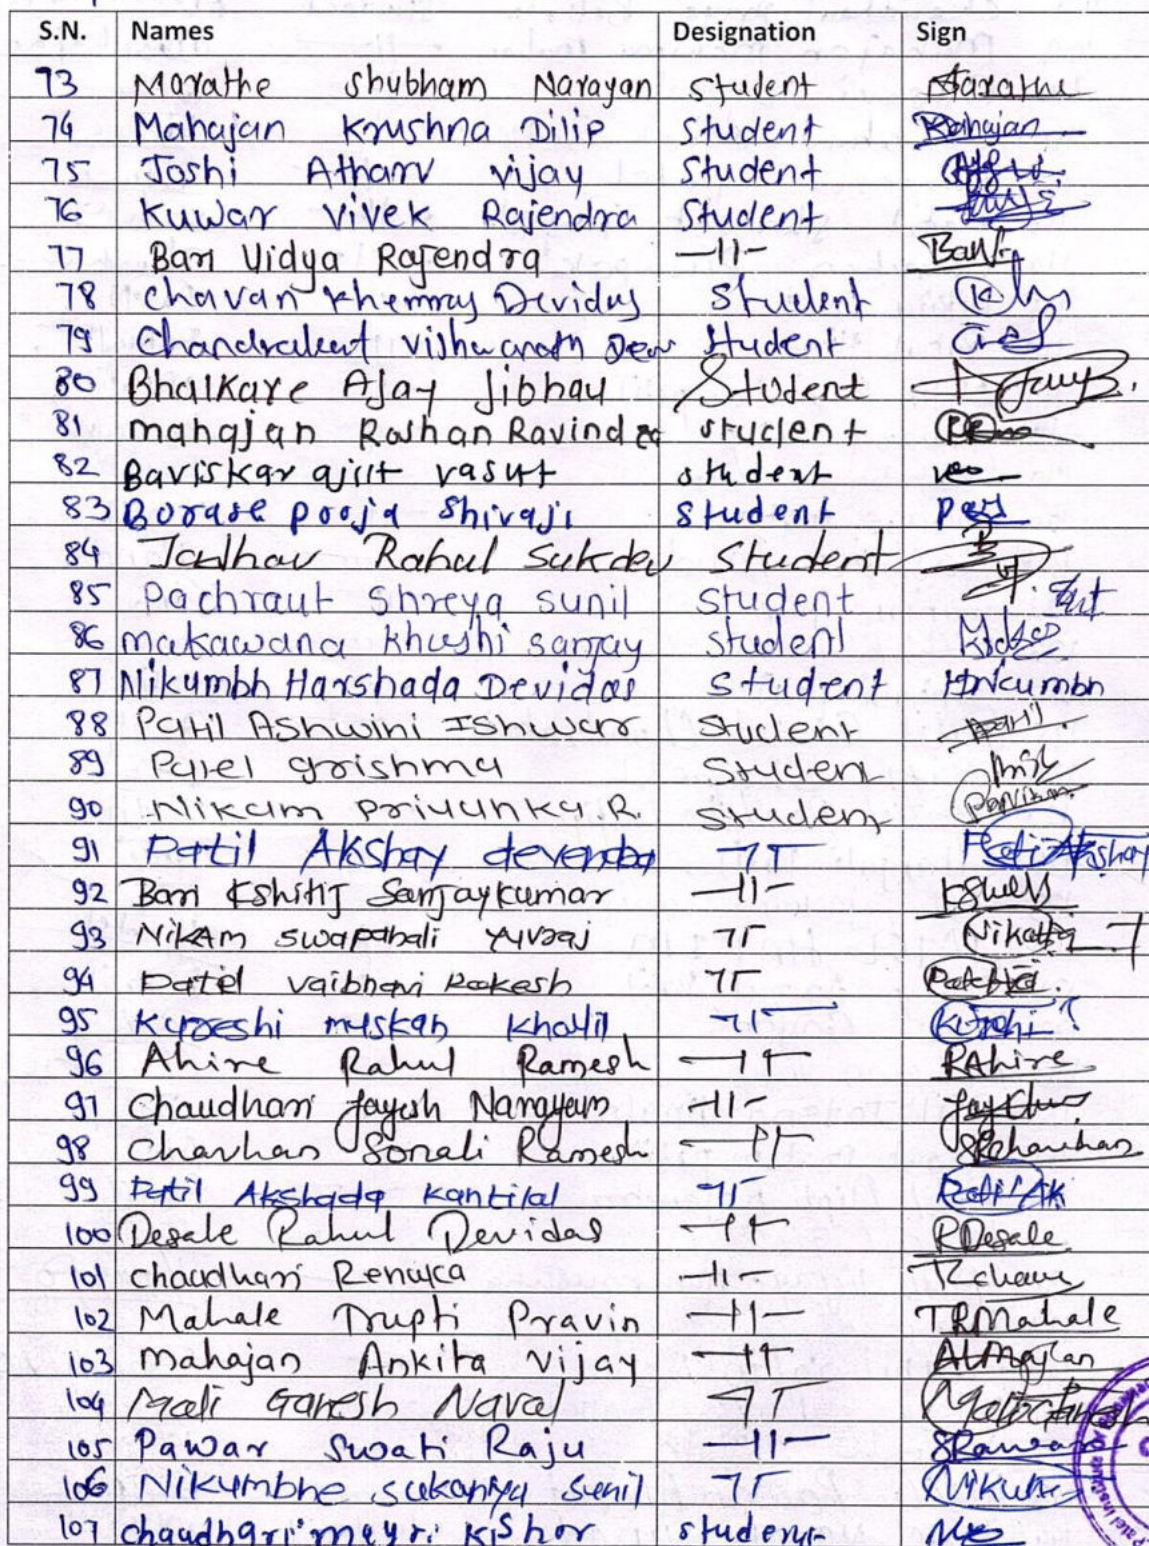 S.N. Names Designation Sign
73 Marathe Shubham Narayan Student Marathe
74 Mahajan Krushna Dilip Student Mahajan
75 Joshi Atharv vijay Student
76 Kuwar vivek Rajendra Student
77 Bari Vidya Rajendra —11—
78 Chavan Khemraj Devidas Student
79 Chandrakant Vishwanath Student
80 Bhalkare Ajay Jibhau Student
81 mahajan Roshan student
82 Baviskar student
83 Borase pooja Shivaji Student
84 Jadhav Rahul Sukdev Student
85 Pachraut Shreya sunil Student
86 makawana khushi sanjay Student
87 Nikumbh Harshada Devidas Student HNikumbh
88 Patil Ashwini Ishwar Student
89 Patel grishma Student
90 Nikam Priyanka.R. Student
91 Patil Akshay devendra —11— Patil Akshay
92 Bari Kshitij Sanjaykumar —11—
93 Nikam swapanali yuvraj —11—
94 Patil vaibhavi Rakesh —11—
95 Kureshi muskan khalil —11—
96 Ahire Rahul Ramesh —11— RAhire
97 Chaudhari Jayesh Narayan —11—
98 Chavhan Sonali Ramesh —11— SRChavhan
99 Patil Akshada kantilal —11— Patil AK
100 Desale Rahul Devidas —11— RDesale
101 chaudhari Renuka —11—
102 Mahale Trupti Pravin —11— TRMahale
103 mahajan Ankita vijay —11—
104 Mali Ganesh Naval —11—
105 Pawar Swati Raju —11— SRPawar
106 Nikumbhe sukanya Sunil —11—
107 chaudhari mayri Kishor student